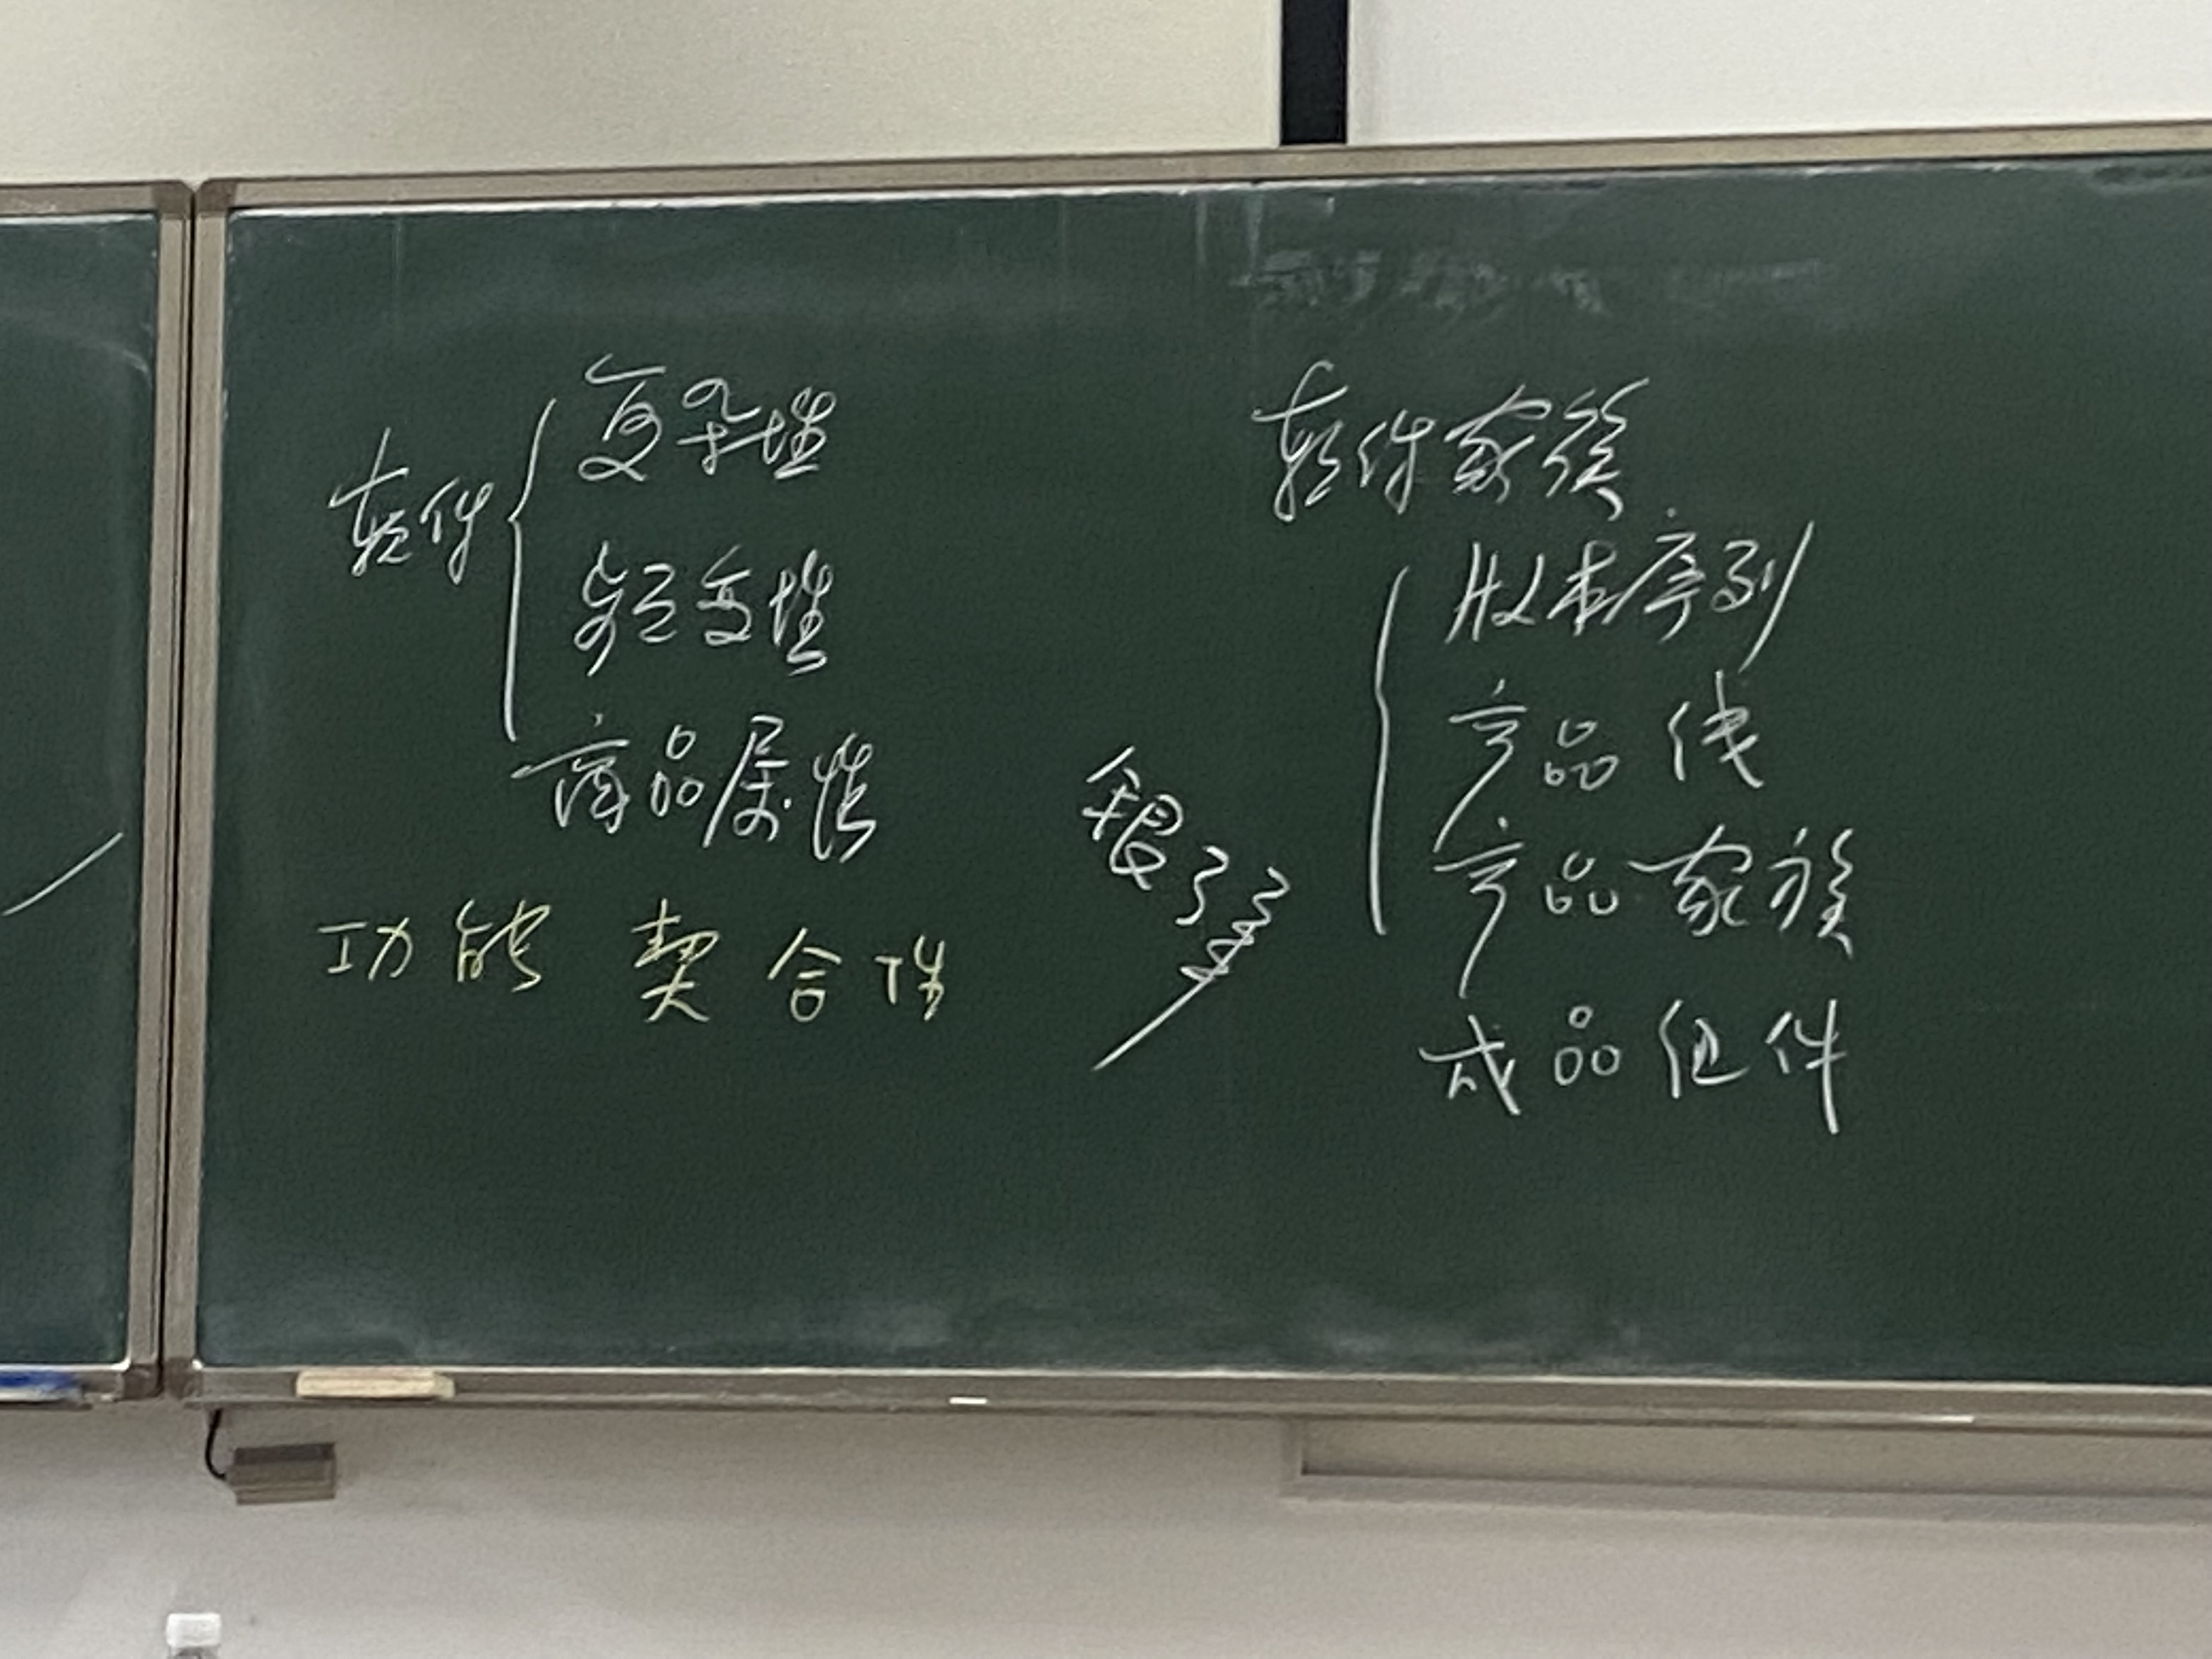 软件
复杂性
易变性
商品属性
功能 契合性
银弹
软件家族
版本序列
产品线
产品家族
成品组件